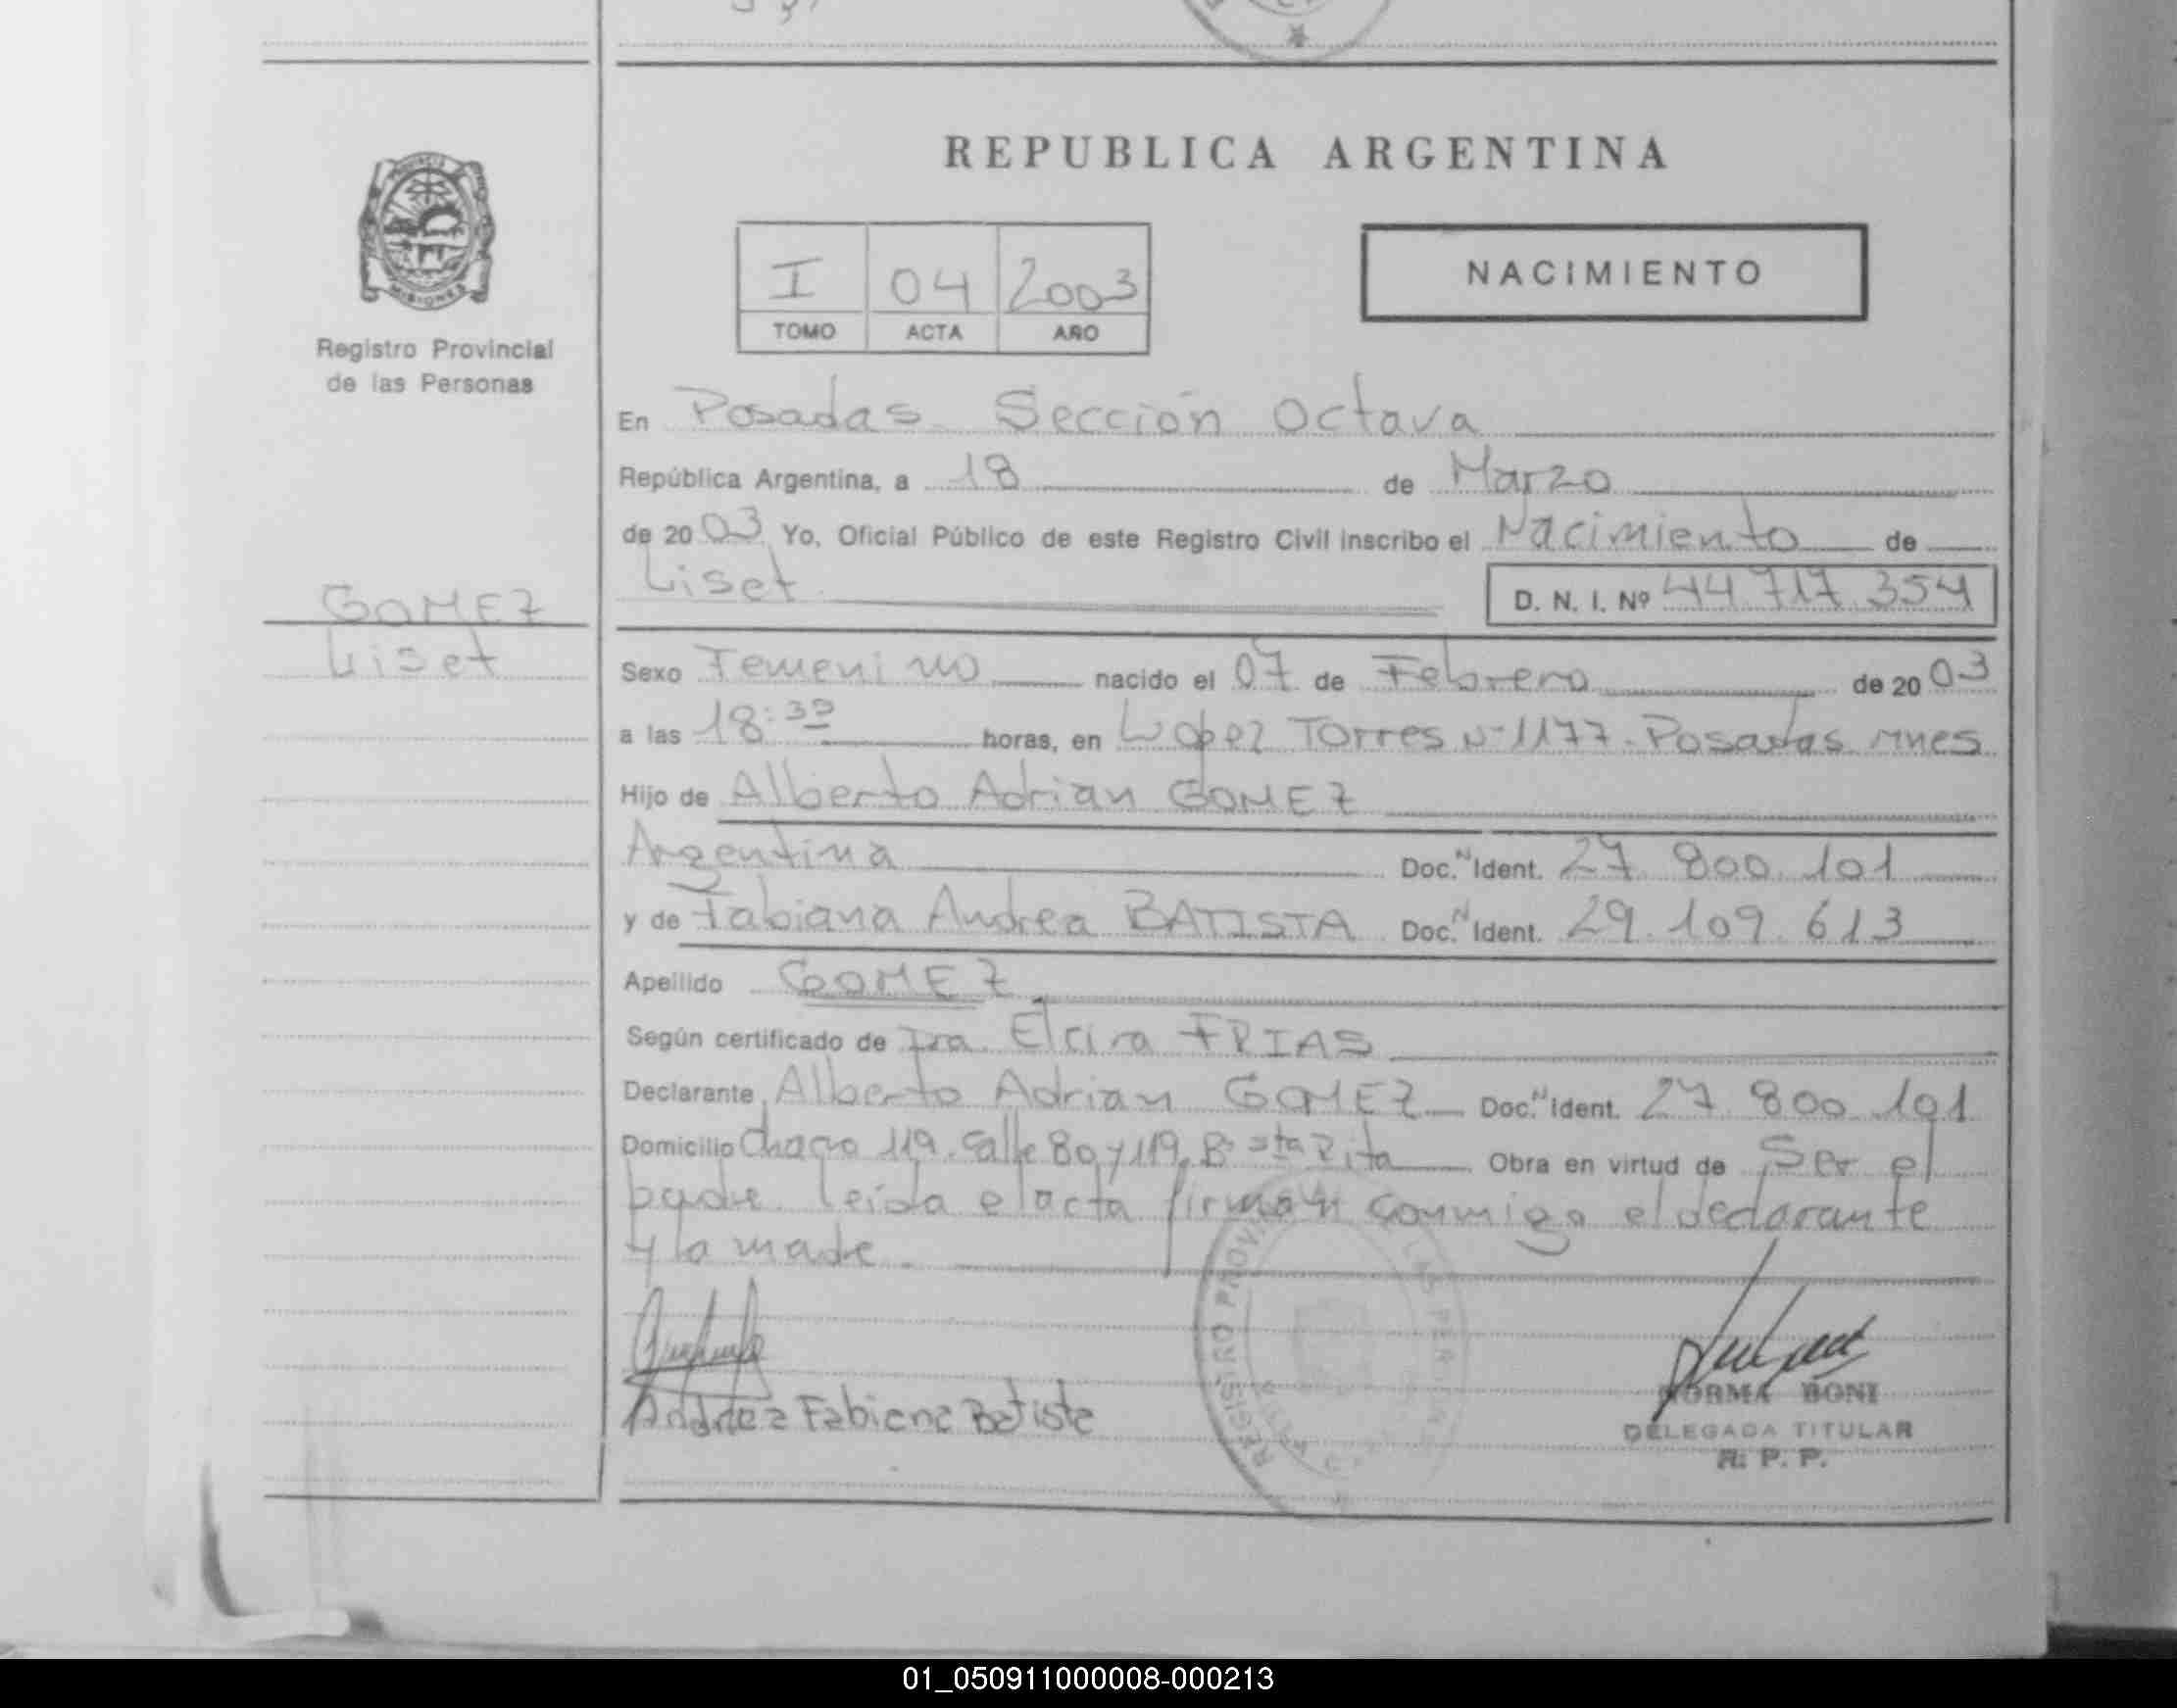 REPUBLICA ARGENTINA
MISIONES
Registro Provincial
de las Personas
I 04 2003
TOMO ACTA AÑO
NACIMIENTO
En Posadas Sección Octava
República Argentina, a 18 de Marzo
de 2003 Yo, Oficial Público de este Registro Civil inscribo el Nacimiento de
Liset D. N. I. Nº 44 717 354
GOMEZ
Liset
Sexo Femenino nacido el 07 de Febrero de 2003
a las 18:39 horas, en Lopez Torres Nº 1177 - Posadas Mnes
Hijo de Alberto Adrian GOMEZ
Argentina Doc. N Ident. 27 800 101
y de Fabiana Andrea BATISTA Doc. N Ident. 29.109.613
Apellido GOMEZ
Según certificado de Dra. Elcira FRIAS
Declarante Alberto Adrian GOMEZ Doc. N Ident. 27 800 101
Domicilio 119. Calle 80 y 119. Bº Sta Rita Obra en virtud de Ser el
padre. Leída el acta firman conmigo el declarante
y la madre.
Andrea Fabiana Batista
REGISTRO PROV LAS PER
NORMA BONI
DELEGADA TITULAR
R. P. P.
01_050911000008-000213